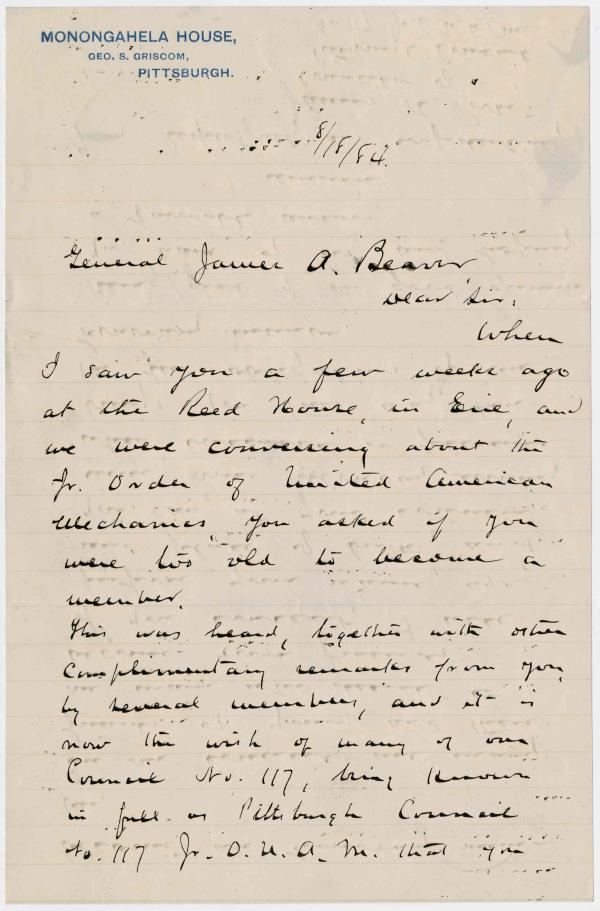 MONONGAHELA HOUSE,
GEO. S. GRISCOM,
PITTSBURGH.
8/18/84.
General James A. Beaver
Dear Sir,
When
I saw you a few weeks ago
at the Reed House, in Erie, and
we were conversing about the
Jr. Order of United American
Mechanics, you asked if you
were too old to become a
member.
This was heard, together with other
complimentary remarks from you,
by several members, and it is
now the wish of many of our
Council No. 117, being known
in full as Pittsburgh Council
No. 117 Jr. O. U. A. M. that you